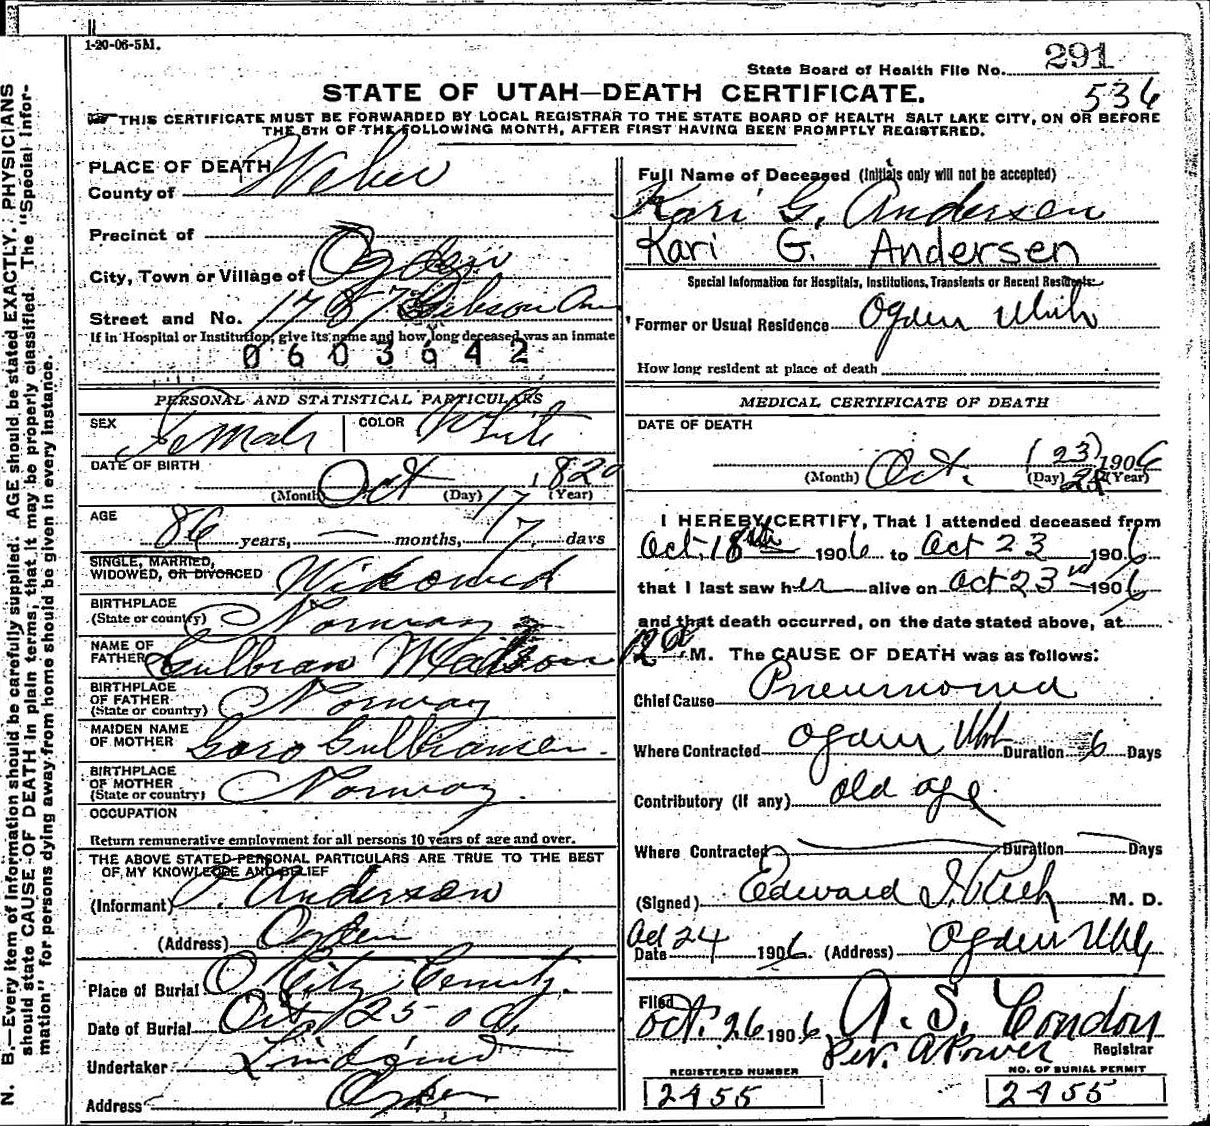 1-20-06-5M.
State Board of Health File No. 291
STATE OF UTAH—DEATH CERTIFICATE.
536
THIS CERTIFICATE MUST BE FORWARDED BY LOCAL REGISTRAR TO THE STATE BOARD OF HEALTH SALT LAKE CITY, ON OR BEFORE
THE 5TH OF THE FOLLOWING MONTH, AFTER FIRST HAVING BEEN PROMPTLY REGISTERED.
N. B.—Every item of information should be carefully supplied. AGE should be stated EXACTLY. PHYSICIANS
should state CAUSE OF DEATH in plain terms, that it may be properly classified. The "Special Infor-
mation" for persons dying away from home should be given in every instance.
PLACE OF DEATH
County of Weber
Precinct of
City, Town or Village of Ogden
Street and No. 1787 Gibson Av
If in Hospital or Institution, give its name and how long deceased was an inmate
0603642
PERSONAL AND STATISTICAL PARTICULARS
SEX Female COLOR White
DATE OF BIRTH
(Month) Oct (Day) 17 1820 (Year)
AGE
86 years, — months, 17 days
SINGLE, MARRIED,
WIDOWED, OR DIVORCED Widowed
BIRTHPLACE
(State or country) Norway
NAME OF
FATHER Gulbran Madson
BIRTHPLACE
OF FATHER
(State or country) Norway
MAIDEN NAME
OF MOTHER Goro Gulbransen.
BIRTHPLACE
OF MOTHER
(State or country) Norway.
OCCUPATION
Return remunerative employment for all persons 10 years of age and over.
THE ABOVE STATED PERSONAL PARTICULARS ARE TRUE TO THE BEST
OF MY KNOWLEDGE AND BELIEF
(Informant) Anderson
(Address) Ogden
Place of Burial O City Cemty.
Date of Burial Oct 25-06,
Undertaker Lindquist
Address Ogden
Full Name of Deceased (Initials only will not be accepted)
Kari G. Andersen
Kari G. Andersen
Special Information for Hospitals, Institutions, Transients or Recent Residents.
Former or Usual Residence Ogden Utah
How long resident at place of death
MEDICAL CERTIFICATE OF DEATH
DATE OF DEATH
(Month) Oct. (23) (Day) 1906 (Year)
I HEREBY CERTIFY, That I attended deceased from
Oct. 18th 1906 to Oct 23 1906
that I last saw her alive on Oct 23rd 1906
and that death occurred, on the date stated above, at
12 a M. The CAUSE OF DEATH was as follows:
Chief Cause Pneumonia
Where Contracted Ogden Utah Duration 6 Days
Contributory (if any) old age
Where Contracted Duration Days
(Signed) Edward I. Rich M. D.
Oct 24
Date 1906 (Address) Ogden Utah
Filed
Oct. 26 1906. A. S. Condon
Per. A Power Registrar
REGISTERED NUMBER
2455
NO. OF BURIAL PERMIT
2455